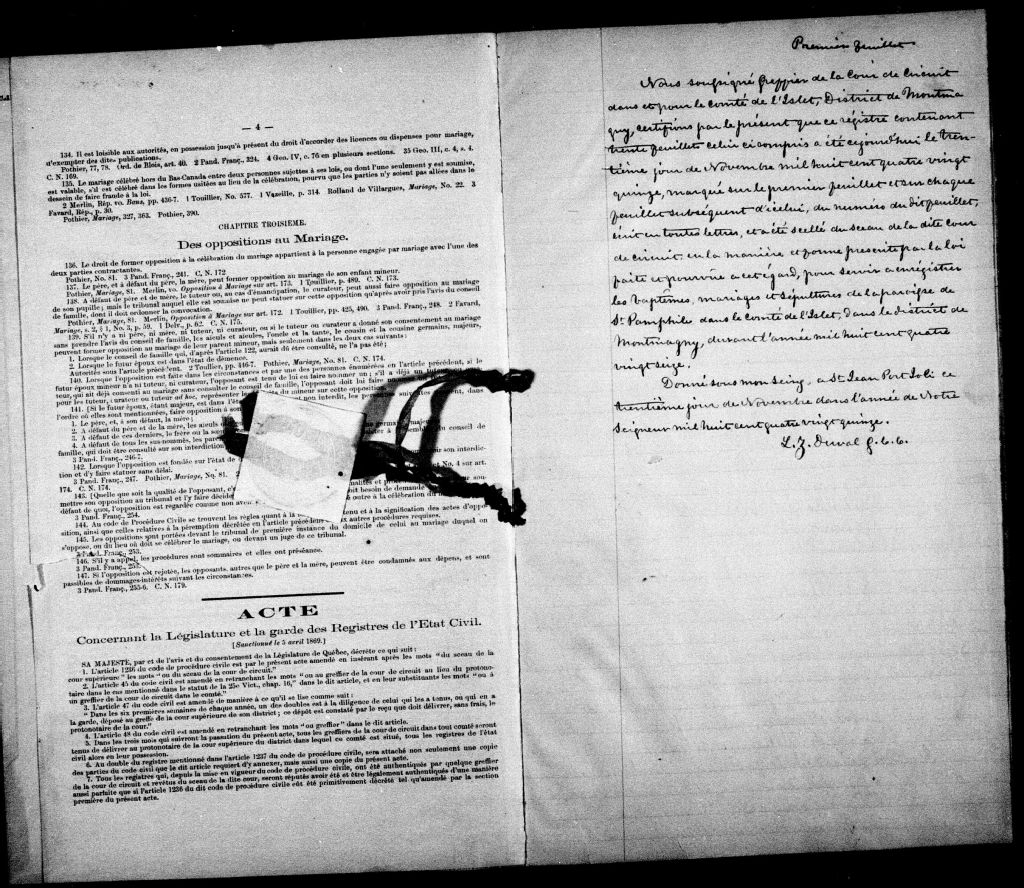 — 4 —
134. Il est loisible aux autorités, en possession jusqu'à présent du droit d'accorder des licences ou dispenses pour mariage,
d'exempter des dites publications.
Pothier, 77, 78. Ord. de Blois, art. 40. 2 Pand. Franç., 324. 4 Geo. IV, c. 76 en plusieurs sections. 35 Geo. III, c. 4, s. 4.
C. N. 169.
135. Le mariage célébré hors du Bas-Canada entre deux personnes sujettes à ses lois, ou dont l'une seulement y est soumise,
est valable, s'il est célébré dans les formes usitées au lieu de la célébration, pourvu que les parties n'y soient pas allées dans le
dessein de faire fraude à la loi.
2 Merlin, Rép. vo. Bans, pp. 436-7. 1 Touillier, No. 577. 1 Vazeille, p. 314. Rolland de Villargues, Mariage, No. 22. 3
Favard, Rép., p. 30.
Pothier, Mariage, 327, 363. Pothier, 390.
CHAPITRE TROISIEME.
Des oppositions au Mariage.
136. Le droit de former opposition à la célébration du mariage appartient à la personne engagée par mariage avec l'une des
deux parties contractantes.
Pothier, No. 81. 3 Pand. Franç., 241. C. N. 172
137. Le père, et à défaut du père, la mère, peut former opposition au mariage de son enfant mineur.
Pothier, Mariage, 81. Merlin, vo. Opposition à Mariage sur art. 173. 1 Touillier, p. 489. C. N. 173.
138. A défaut de père et de mère, le tuteur ou, au cas d'émancipation, le curateur, peut aussi faire opposition au mariage
de son pupille; mais le tribunal auquel elle est soumise ne peut statuer sur cette opposition qu'après avoir pris l'avis du conseil
de famille, dont il doit ordonner la convocation.
Pothier, Mariage, 81. Merlin, Opposition à Mariage sur art. 172. 1 Touillier, pp. 425, 490. 3 Pand. Franç., 248. 2 Favard,
Mariage, s. 2, § 1, No. 3, p. 59. 1 Delv., p. 62. C. N. 175.
139. S'il n'y a ni père, ni mère, ni tuteur, ni curateur, ou si le tuteur ou curateur a donné son consentement au mariage
sans prendre l'avis du conseil de famille, les aïeuls et aïeules, l'oncle et la tante, le cousin et la cousine germains, majeurs,
peuvent former opposition au mariage de leur parent mineur, mais seulement dans les deux cas suivants:
1. Lorsque le conseil de famille qui, d'après l'article 122, aurait dû être consulté, ne l'a pas été;
2. Lorsque le futur époux est dans l'état de démence.
Autorités sous l'article précédent. 2 Touillier, pp. 446-7. Pothier, Mariage, No. 81. C. N. 174.
140. Lorsque l'opposition est faite dans les circonstances et par une des personnes énumérées en l'article précédent, si le
futur époux mineur n'a ni tuteur, ni curateur, l'opposant est tenu de lui en faire nommer un; s'il a déjà un
teur, qui ait déjà consenti au mariage sans consulter le conseil de famille, l'opposant doit lui faire
pour les tuteur, curateur ou tuteur ad hoc, représenter les du mineur sur cette opposition.
141. [Si le futur époux, étant majeur, est dans non interdit, les dans
l'ordre où elles sont mentionnées, faire opposition à son
1. Le père, et, à son défaut, la mère;
2. A défaut du père et de la mère, les aïeuls
3. A défaut de ces derniers, le frère ou la
4. A défaut de tous les sus-nommés, les conseil de
famille, qui doit être consulté sur son interdiction
3 Pand. Franç., 246-7.
142. Lorsque l'opposition est fondée sur l'état de son interdic-
tion et d'y faire statuer sans délai.
3 Pand. Franç., 247. Pothier, Mariage, No. 81. et No. 4 sur art.
174. C. N. 174.
143. [Quelle que soit la qualité de l'opposant,
mettre son opposition au tribunal et l'y faire besoin de demande
défaut de quoi, l'opposition est regardée comme non outre à la célébration du
3 Pand. Franç., 254.
144. Au code de Procédure Civile se trouvent les règles quant à et à la signification des actes d'oppo-
sition, ainsi que celles relatives à la péremption décrétée en l'article précédent autres procédures requises.
145. Les oppositions sont portées devant le tribunal de première instance du domicile de celui au mariage duquel on
s'oppose, ou du lieu où doit se célébrer le mariage, ou devant un juge de ce tribunal.
3 Pand. Franç., 253.
146. S'il y a appel, les procédures sont sommaires et elles ont préséance.
3 Pand. Franç.,
147. Si l'opposition est rejetée, les opposants, autres que le père et la mère, peuvent être condamnés aux dépens, et sont
passibles de dommages-intérêts suivant les circonstances.
3 Pand. Franç., 255-6. C. N. 179.
ACTE
Concernant la Législature et la garde des Registres de l'Etat Civil.
[Sanctionné le 5 avril 1869.]
SA MAJESTÉ, par et de l'avis et du consentement de la Législature de Québec, décrète ce qui suit:
1. L'article 1236 du code de procédure civile est par le présent acte amendé en insérant après les mots "du sceau de la
cour supérieure" les mots "ou du sceau de la cour de circuit."
2. L'article 45 du code civil est amendé en retranchant les mots "ou au greffier de la cour de circuit au lieu du protono-
taire dans le cas mentionné dans le statut de la 25e Vict., chap. 16," dans le dit article, et en leur substituant les mots "ou à
un greffier de la cour de circuit dans le comté."
3. L'article 47 du code civil est amendé de manière à ce qu'il se lise comme suit:
"Dans les six premières semaines de chaque année, un des doubles est à la diligence de celui qui les a tenus, ou qui en a
la garde, déposé au greffe de la cour supérieure de son district; ce dépôt est constaté par le reçu que doit délivrer, sans frais, le
protonotaire de la cour."
4. L'article 48 du code civil est amendé en retranchant les mots "ou greffier" dans le dit article.
5. Dans les trois mois qui suivront la passation du présent acte, tous les greffiers de la cour de circuit dans tout comté seront
tenus de délivrer au protonotaire de la cour supérieure du district dans lequel ce comté est situé, tous les registres de l'état
civil alors en leur possession.
6. Au double du registre mentionné dans l'article 1237 du code de procédure civile, sera attaché non seulement une copie
des parties du code civil que le dit article requiert d'y annexer, mais aussi une copie du présent acte.
7. Tous les registres qui, depuis la mise en vigueur du code de procédure civile, ont été authentiqués par quelque greffier
de la cour de circuit et revêtus du sceau de la dite cour, seront réputés avoir été et être légalement authentiqués d'une manière
aussi parfaite que si l'article 1236 du dit code de procédure civile eût été primitivement décrété tel qu'amendé par la section
première du présent acte.
Premier feuillet
Nous soussigné greffier de la Cour de Circuit
dans et pour le comté de l'Islet, District de Montma
gny, certifions par le présent que ce régistre contenant
trente feuillets celui ci compris a été cejourd'hui le tren-
tième jour de Novembre mil huit cent quatre vingt
quinze, marqué sur le premier feuillet et sur chaque
feuillet subséquent d'icelui, du numéro du dit feuillet,
écrit en toutes lettres, et a été scellé du sceau de la dite cour
de circuit, en la manière et forme presente par la loi
faite et pourvue a cet egard, pour servir a enrégistrer
les baptèmes, mariages et sépultures de la paroisse de
St Pamphile dans le comté de l'Islet, dans le district de
Montmagny, durant l'année mil huit cent quatre
vingt seize.
Donné sous mon seing, a St Jean Port Joli ce
trentième jour de Novembre dans l'année de Notre
Seigneur mil huit cent quatre vingt quinze.
L. Z. Duval g. c. c.